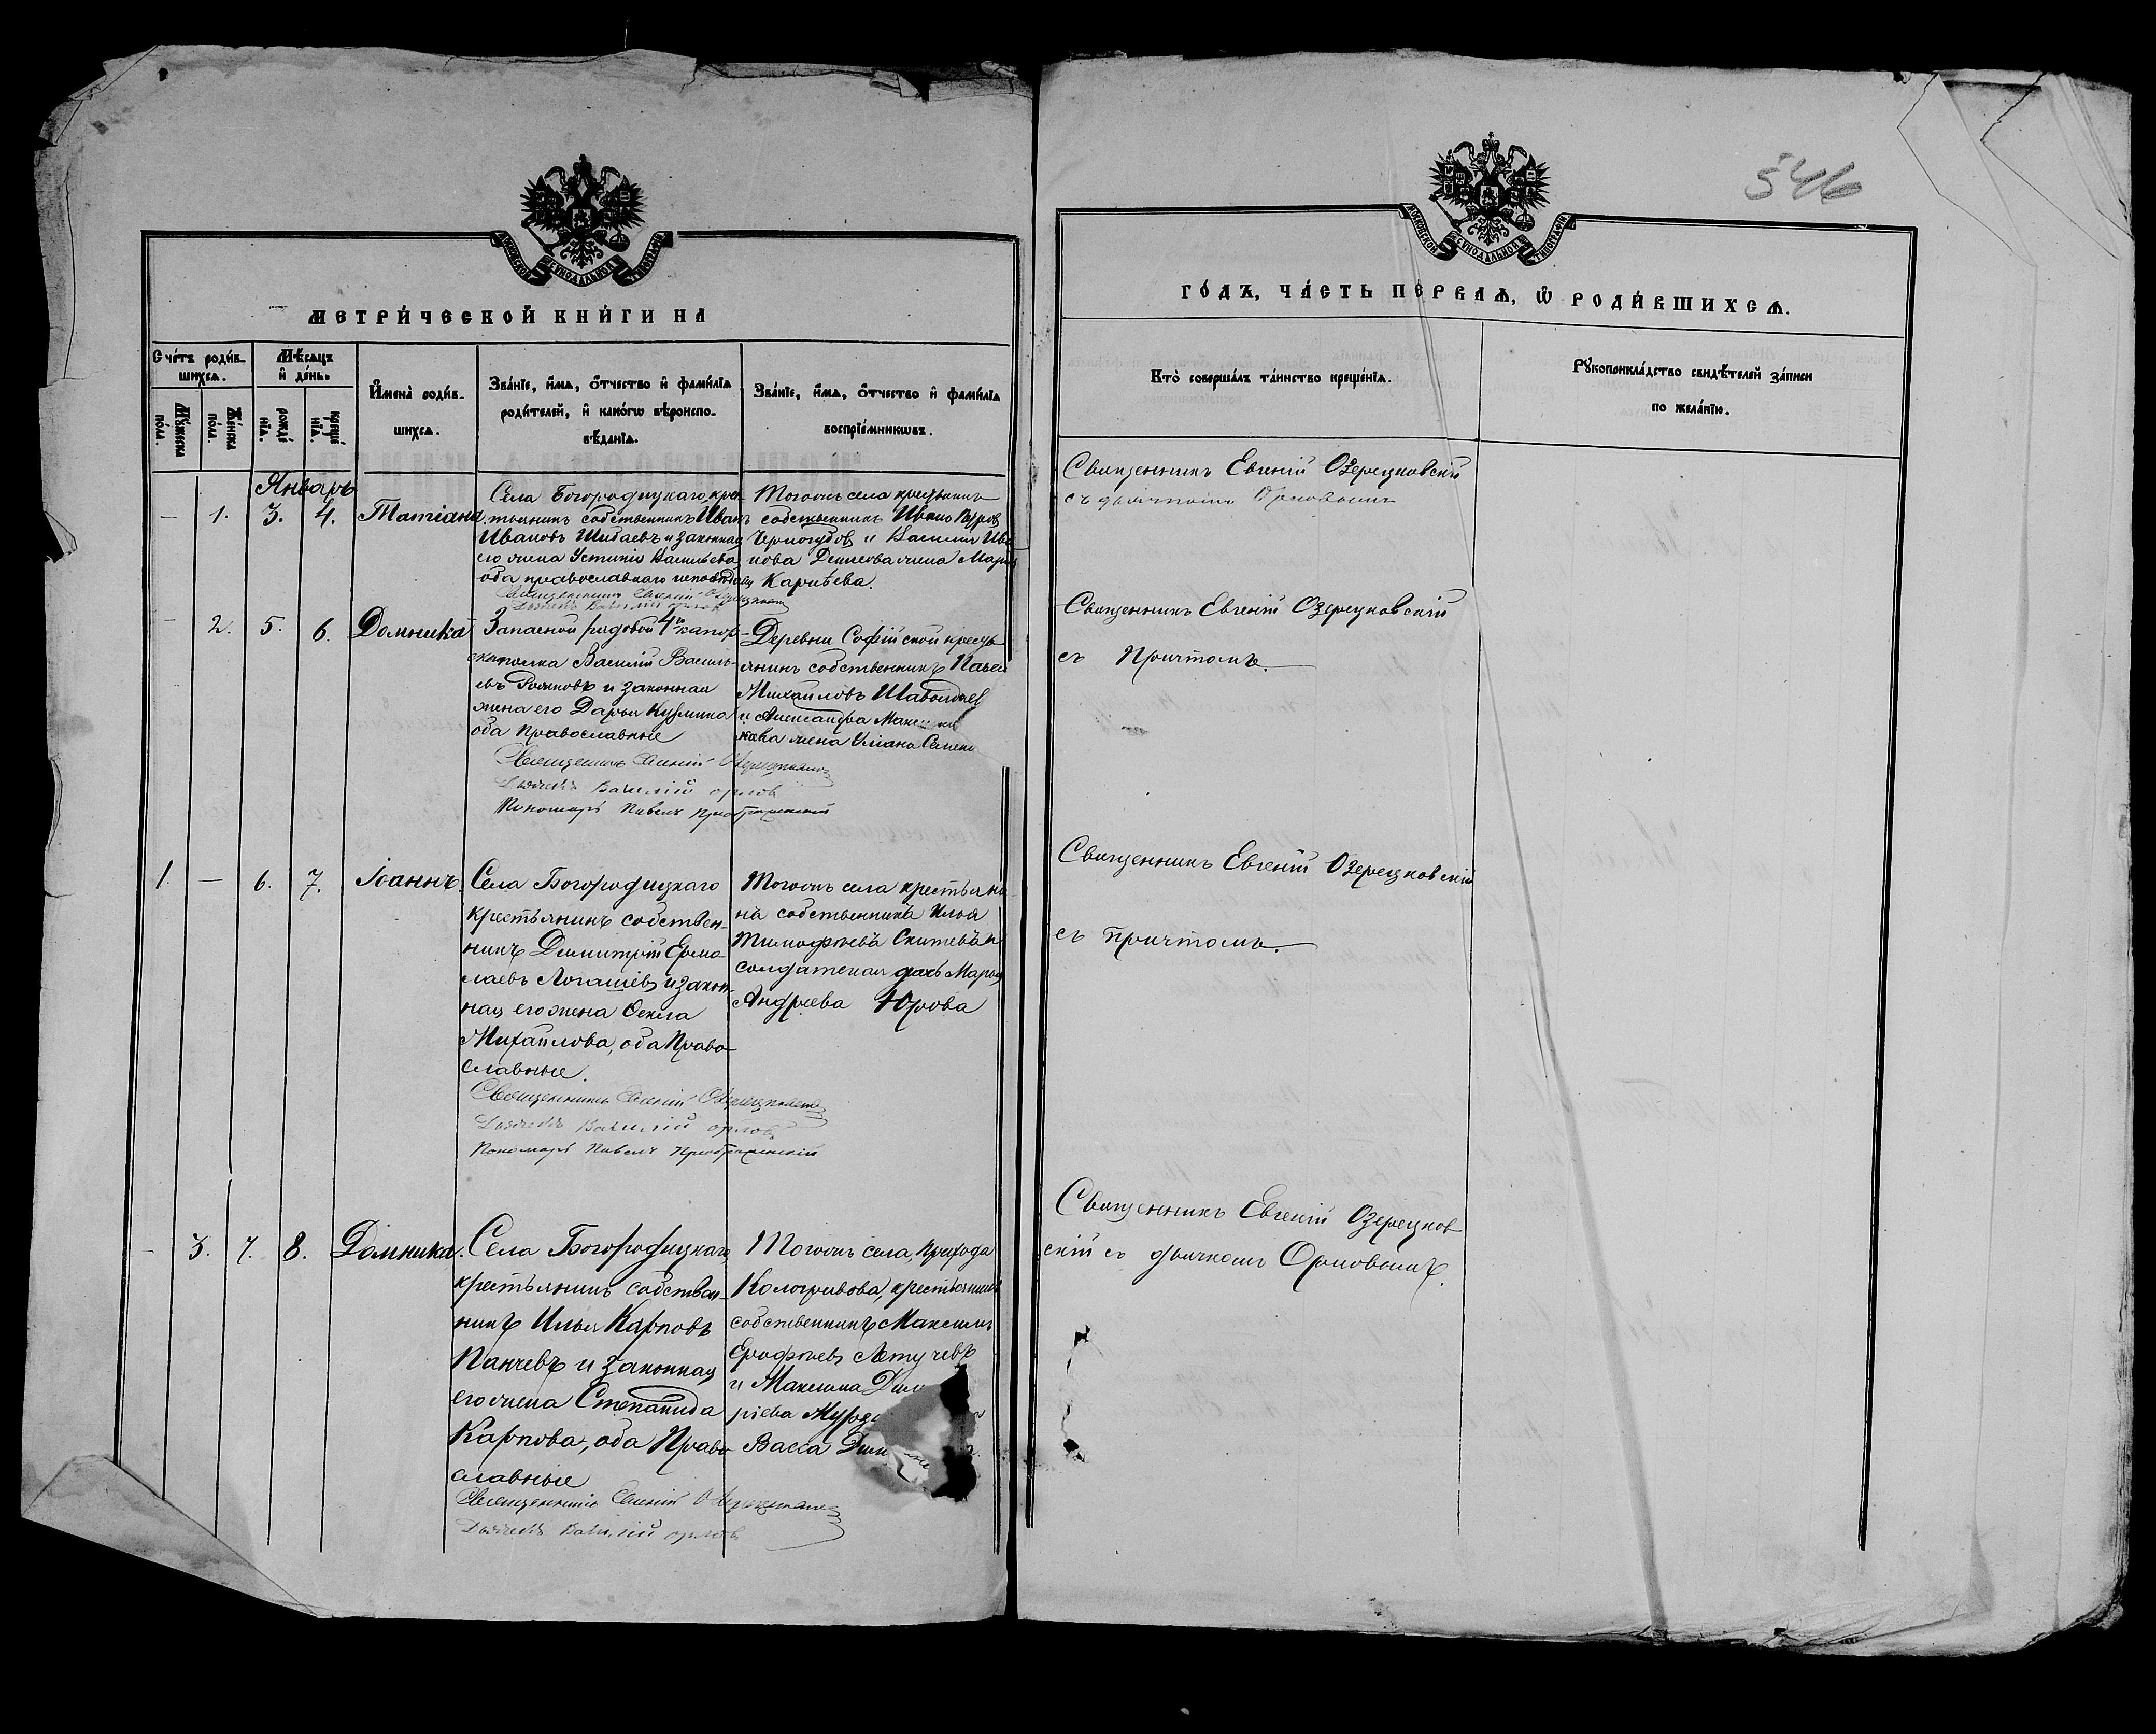 546
МОСКОВСКОЙ СѴНОДАЛЬНОЙ ТИПОГРАФІИ
МОСКОВСКОЙ СѴНОДАЛЬНОЙ ТИПОГРАФІИ
МЕТРИ́ЧЕСКОЙ КНИ́ГИ НА
ГО́ДЪ, ЧА́СТЬ ПЕ́РВАѦ, Ѡ҆ РОДИ́ВШИХСѦ.
Сче́тъ роди́в-
шихсѧ.
Мѣ́сѧцъ
и҆ де́нь.
Мꙋ́жеска
по́ла.
Же́нска
по́ла.
рожде́
нїѧ.
креще́
нїѧ.
И҆мена̀ роди́в-
шихсѧ.
Зва́нїе, и҆́мѧ, ѻ҆́тчество и҆ фами́лїѧ
роди́телей, и҆ како́гѡ вѣроиспо-
вѣ́данїѧ.
Зва́нїе, и҆́мѧ, ѻ҆́тчество и҆ фами́лїѧ
воспрїе́мникѡвъ.
Кто̀ соверша́лъ та́инство креще́нїѧ.
Рꙋкоприкла́дство свидѣ́телей за́писи
по жела́нїю.
Январь
— 1. 3. 4. Татіана.
Села Богородицкаго, крес
тьянинъ собственникъ Иванъ
Ивановъ Шибаевъ и законная
его жена Устинія Васильева
оба православнаго исповѣданія
Священникъ Евгеній Озерецковскій
Дьячекъ Василій Орловъ
Тогожъ села крестьянинъ
собственникъ Иванъ
и Василія Ива
нова жена Марія
Карпѣева.
Священникъ Евгеній Озерецковскій
съ дьячкомъ Орловымъ
— 2. 5. 6. Домника
Запасной рядовой 4го капор-
скаполка Василій Василь-
евъ и законная
жена его Дарья Кузмина
оба Православные
Священникъ Евгеній Озерецковскій
Дьячекъ Василій Орловъ
Пономарь Павелъ Преображенскій
Деревни Софійской кресть
янинъ собственникъ Павелъ
Михайловъ
и Александра
жена Семен
Священникъ Евгеній Озерецковскій
съ Причтомъ.
1. — 6. 7. Іоаннъ.
Села Богородицкаго
крестьянинъ собствен-
никъ Димитрій Ермо
лаевъ Логашевъ и закон-
ная его жена Ѳекла
Михайлова, оба Право
славные.
Священникъ Евгеній Озерецковскій
Дьячекъ Василій Орловъ
Пономарь Павелъ Преображенскій
Тогожъ села крестьяни-
на собственника Илья
Тимофѣева и
солдатская дочь Марья
Андреева Юрова
Священникъ Евгеній Озерецковскій
съ причтомъ.
— 3. 7. 8. Домника.
Села Богородицкаго,
крестьянинъ собствен-
никъ Илья Карповъ
Панчевъ и законная
его жена Степанида
Карпова, оба Право
славные
Священникъ Евгеній Озерецковскій
Дьячекъ Василій Орловъ
Тогожъ села, прихода
Кологривова, крестьянинъ
собственникъ Максимъ
Ерофѣевъ Летучевъ
и Максима Дим
ріева
Васса
Священникъ Евгеній Озерецков
скій съ дьячкомъ Орловымъ.